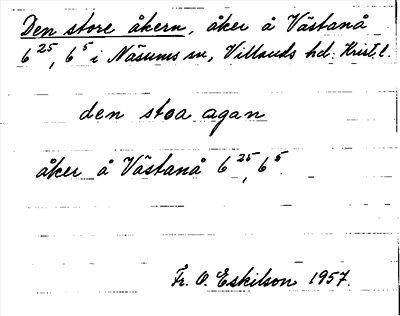 Den store åkern, åker å Västanå
6²⁵, 6⁵ i Näsums sn, Villands hd. Krist.l.
den stoa agan
åker å Västanå 6²⁵, 6⁵.
Fr. O. Eskilson 1957.